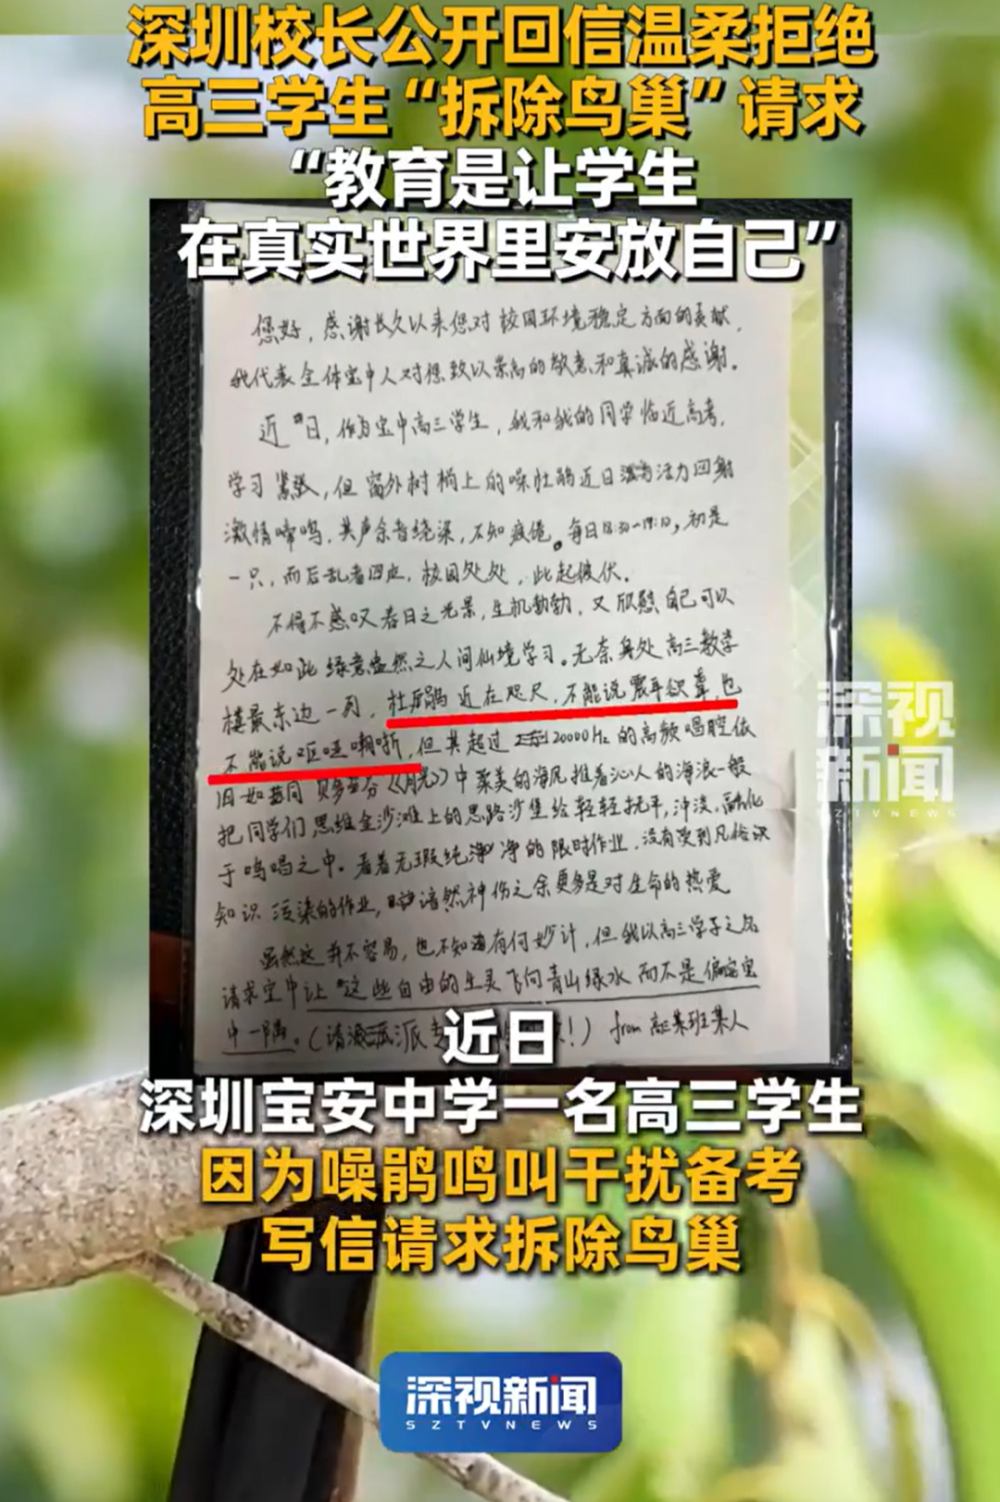 深圳校长公开回信温柔拒绝
高三学生“拆除鸟巢”请求
“教育是让学生
在真实世界里安放自己”
您好，感谢长久以来您对校园环境稳定方面的贡献，
我代表全体宝中人对您致以崇高的敬意和真诚的感谢。
近日，作为宝中高三学生，我和我的同学临近高考，
学习紧张，但窗外树梢上的噪杜鹃近日活力回射
激情啼鸣，其声余音绕梁，不知疲倦。每日18:30-19:10，初是
一只，而后乱者四应，校园处处，此起彼伏。
不得不感叹春日之光景，生机勃勃，又欣慰自己可以
处在如此绿意盎然之人间仙境学习。无奈身处高三教学
楼最东边一列，杜鹃近在咫尺，不能说震耳欲聋，也
不能说呕哑嘲哳，但其超过20000Hz的高频唱腔依
旧如同贝多芬《月光》中柔美的海风推着沁人的海浪一般
把同学们思维金沙滩上的思路沙堡给轻轻抚平，冲淡，融化
于鸣唱之中。看着无瑕纯净的限时作业，没有受到凡俗
知识污染的作业，黯然神伤之余更多是对生命的热爱
虽然这并不容易，也不知有何妙计，但我以高三学子之名
请求宝中让这些自由的生灵飞向青山绿水而不是偏宝
中一隅。（请派！）from 高三某班某人
深视新闻
SZTVNEWS
近日
深圳宝安中学一名高三学生
因为噪鹃鸣叫干扰备考
写信请求拆除鸟巢
深视新闻
SZTVNEWS